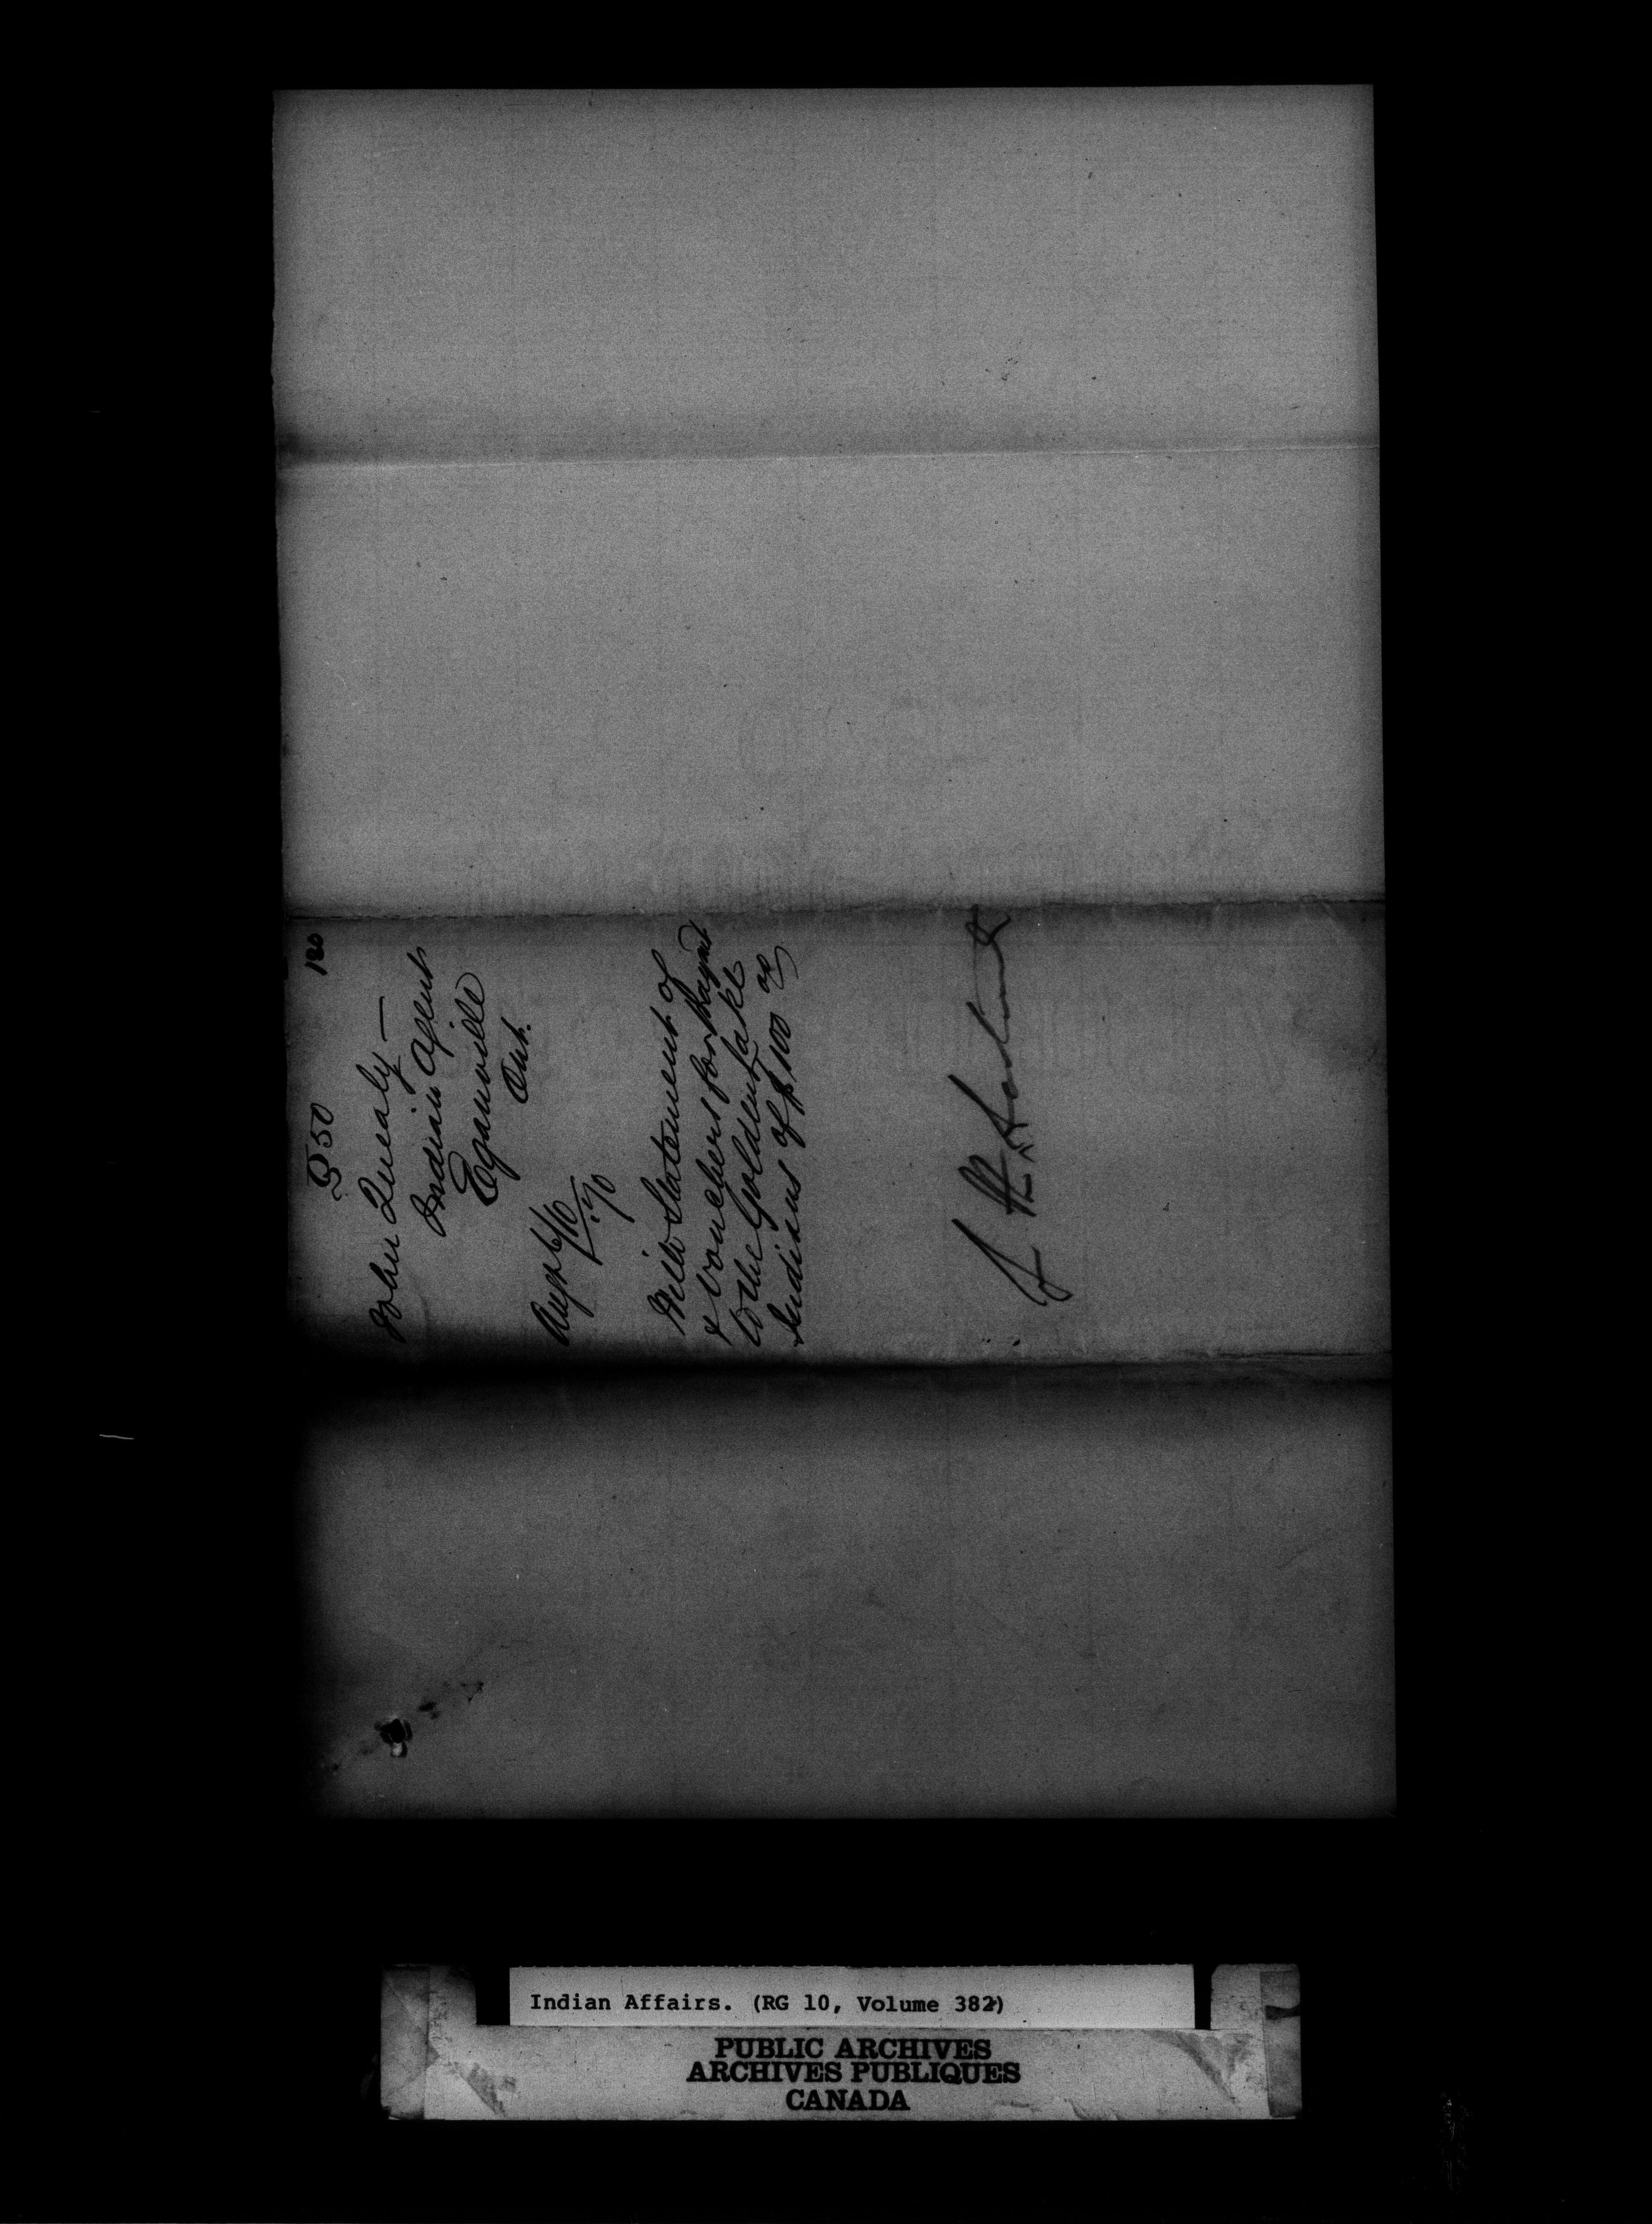 Q 50 180
John Quealy —
Indian Agent
Eganville
Ont.
Augst 6/10
'70
With Statement of
& vouchers for Paymt
to the Golden Lake
Indians of $100 00
Indian Affairs. (RG 10, Volume 382)
PUBLIC ARCHIVES
ARCHIVES PUBLIQUES
CANADA